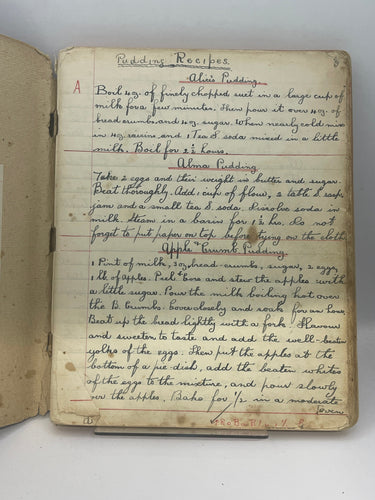 Pudding Recipes. 8
Alix's Pudding.
A Boil 4oz. of finely chopped suet in a large cup of
milk for a few minutes. Then pour it over 4oz. of
bread crumbs and 4oz. sugar. When nearly cold mix
in 4oz. raisins and 1 Tea S. soda mixed in a little
milk. Boil for 2½ hours.
Alma Pudding
Take 2 eggs and their weight in butter and sugar.
Beat thoroughly. Add 1 cup of flour, 2 table S. rasp.
jam and a small tea S. soda. Dissolve soda in
milk. Steam in a basin for 1½ hrs. Do not
forget to put paper on top before tying on the cloth
Apple & Crumb Pudding.
1 Pint of milk, 3oz. bread-crumbs, sugar, 2 eggs,
1 lb of apples. Peel & core and stew the apples with
a little sugar. Pour the milk boiling hot over
the B. Crumbs. Cover closely and soak for an hour.
Beat up the bread lightly with a fork. Flavour
and sweeten to taste and add the well-beaten
yolks of the eggs. Then put the apples at the
bottom of a pie-dish, add the beaten whites
of the eggs to the mixture, and pour slowly
over the apples. Bake for ½ in a moderate
oven